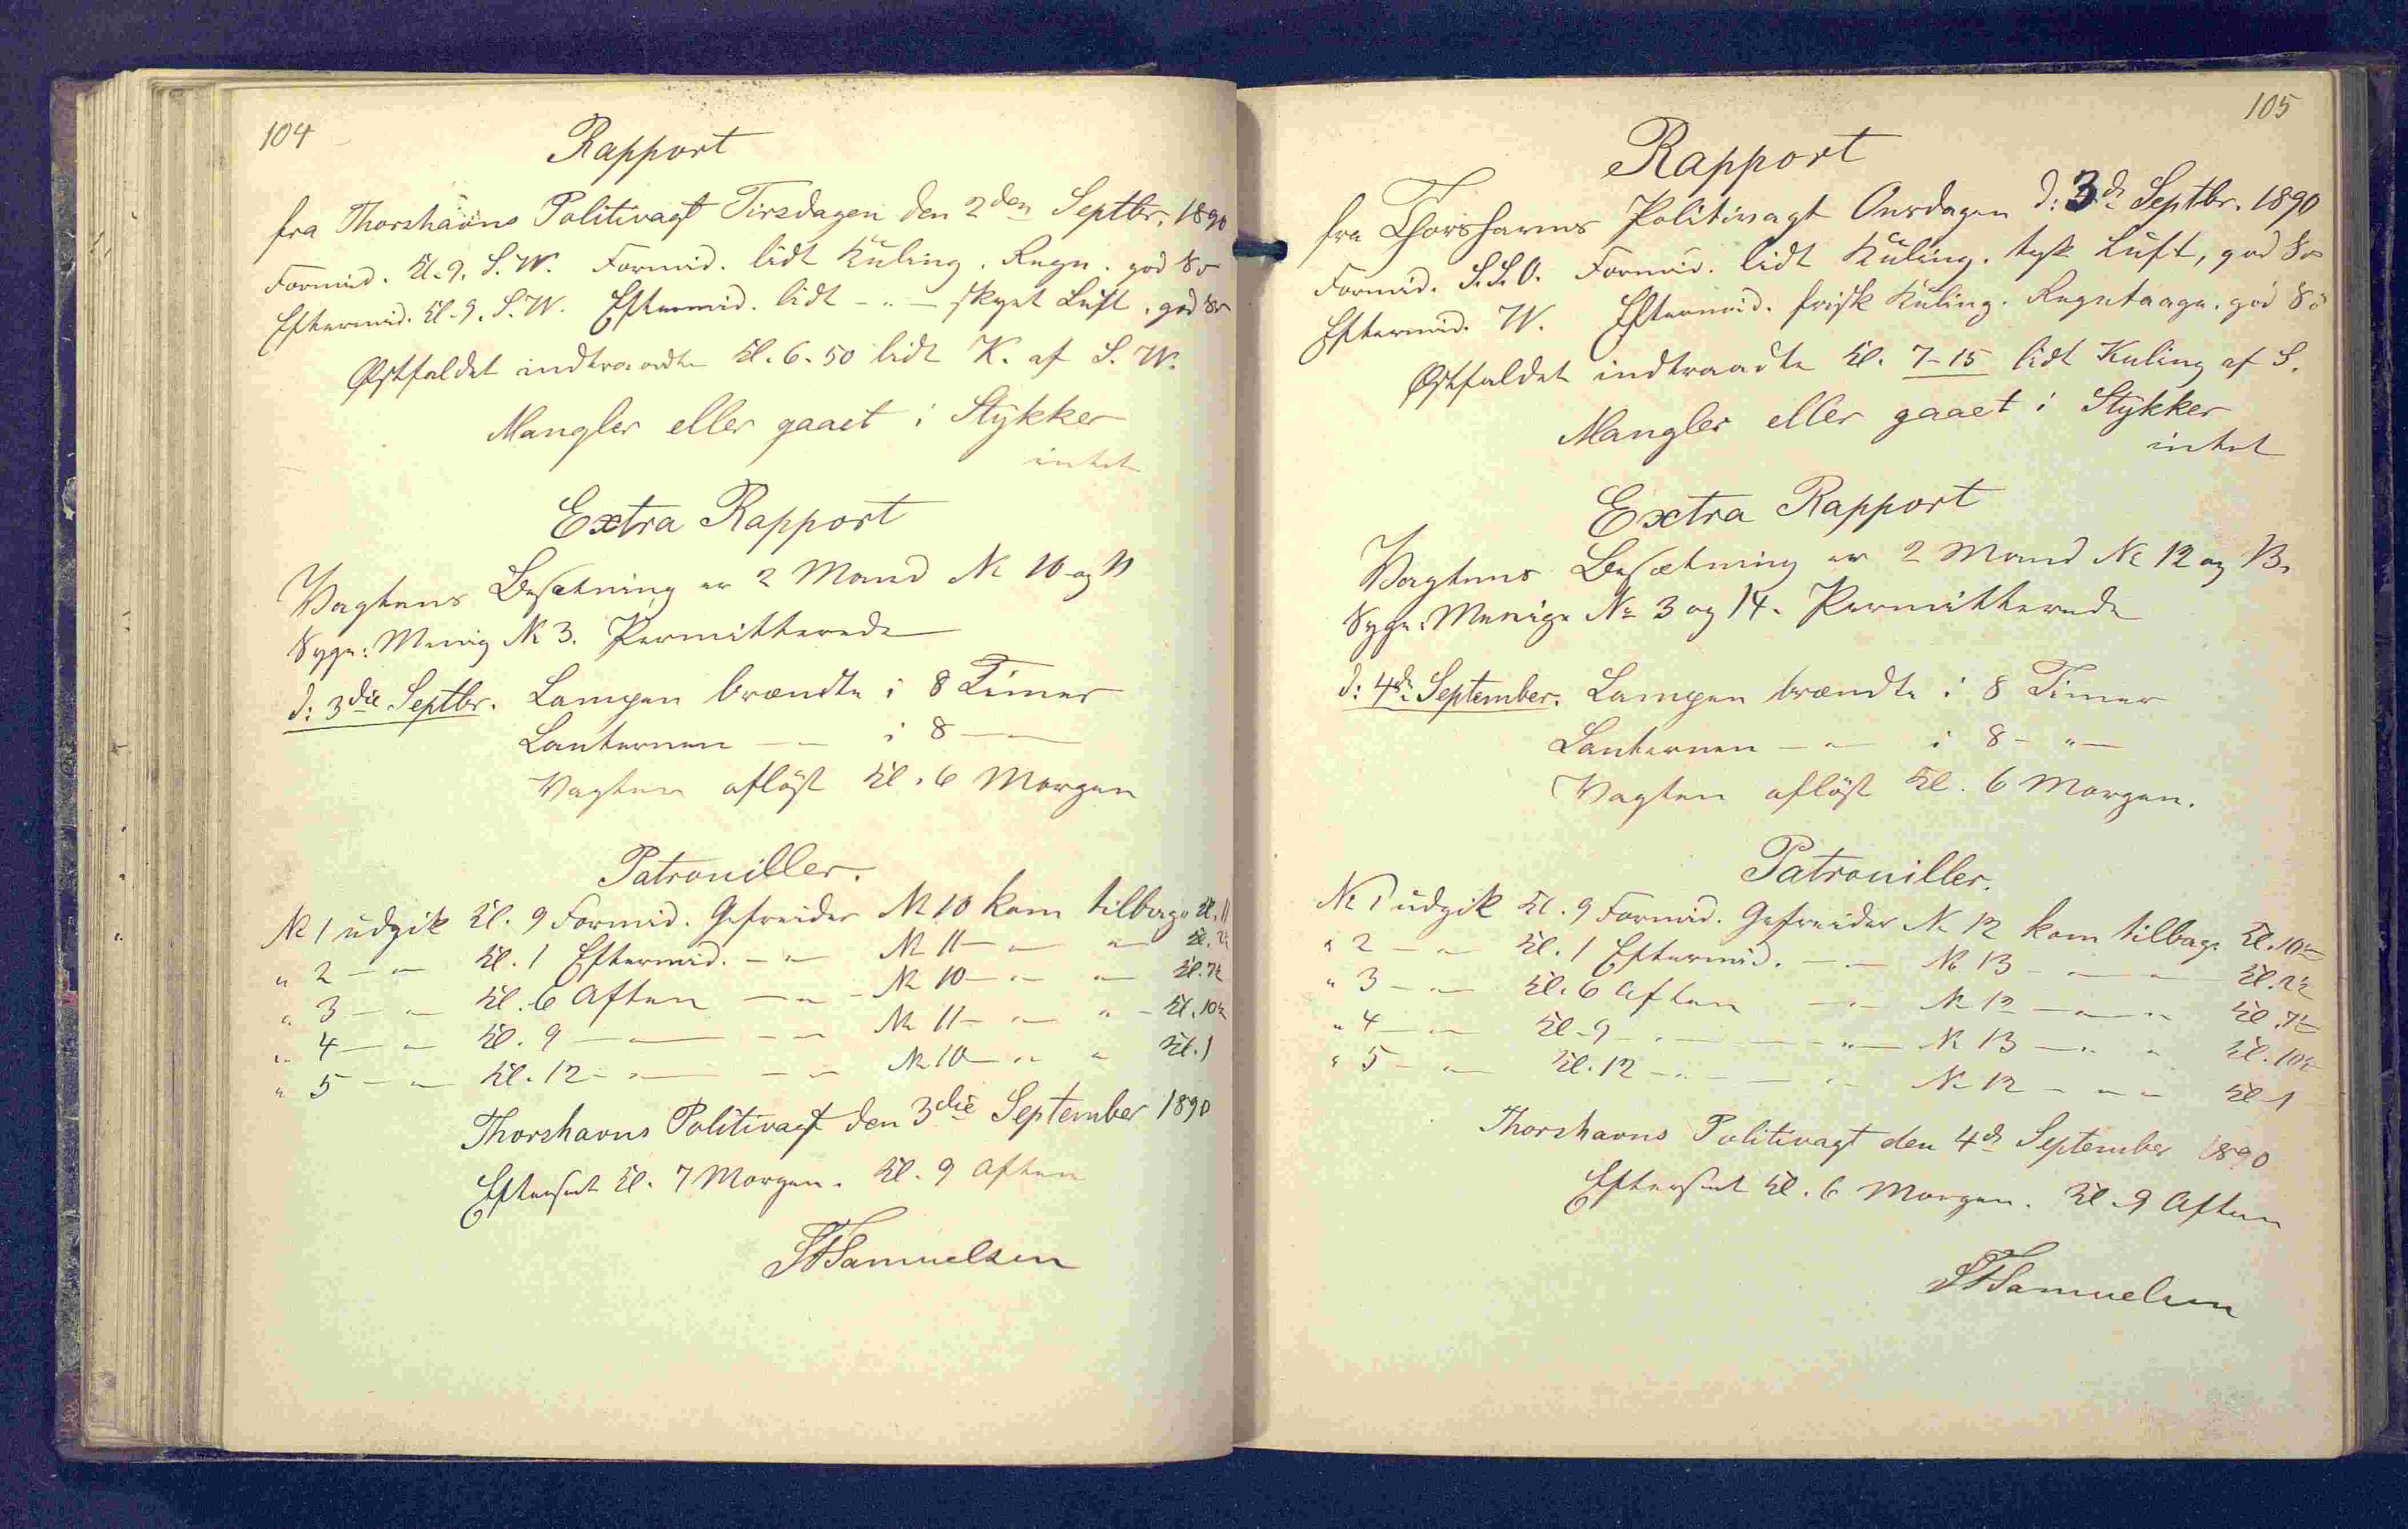 104
Rapport
fra Thorshavns Politivagt Tirsdagen den 2den Septbr. 1890
Formid. Kl. 9. S.W. Formid. lidt Kuling. Regn. god Sø
Eftermid. Kl. 9. S.W. Eftermid. lidt -"- skyet Luft. god Sø
Østfaldet indtraadte Kl. 6-50 lidt K. af S.W.
Mangler eller gaaet i Stykker
intet
Extra Rapport
Vagtens Besætning er 2 Mand № 10 og 11
Syge: Menig № 3. Permitterede
d: 3die Septbr. Lampen brændte i 8 Timer
Lanternen -"- i 8 -"-
Vagten afløst Kl. 6 Morgen
Patrouiller.
№ 1 udgik Kl. 9 Formid. Gefreider № 10 kom tilbage Kl. 11
" 2 -"- Kl. 1 Eftermid. -"- № 11 -"- " Kl. 2½
" 3 -"- Kl. 6 Aften -"- № 10 -"- " Kl. 7½
" 4 -"- Kl. 9 -"- -"- № 11 -"- " - Kl. 10½
" 5 -"- Kl. 12 -"- -"- № 10 -"- " Kl. 1
Thorshavns Politivagt den 3die September 1890
Efterseet Kl. 7 Morgen. Kl. 9 Aften
Samuelsen
105
Rapport
fra Thorshavns Politivagt Onsdagen d: 3de Septbr. 1890
Formid. S.S.O. Formid. lidt Kuling. tyk Luft, god Sø
Eftermid. W. Eftermid. frisk Kuling. Regntaage. god Sø
Østfaldet indtraadte Kl. 7-15 lidt Kuling af S.
Mangler eller gaaet i Stykker
intet
Extra Rapport
Vagtens Besætning er 2 Mand № 12 og 13.
Syge: Menige № 3 og 14. Permitterede
d: 4de September. Lampen brændte i 8 Timer
Lanternen -"- i 8 -"-
Vagten afløst Kl. 6 Morgen.
Patrouiller.
№ 1 udgik Kl. 9 Formid. Gefreider № 12 kom tilbage Kl. 10½
" 2 -"- Kl. 1 Eftermid. -"- № 13 -"- -"- Kl. 2½
" 3 -"- Kl. 6 Aften -"- № 12 -"- " Kl. 7½
" 4 -"- Kl. 9 -"- -"- № 13 -"- " Kl. 10½
" 5 -"- Kl. 12 -"- -"- № 12 -"- - Kl. 1
Thorshavns Politivagt den 4de September 1890
Efterseet Kl. 6 Morgen. Kl. 9 Aften
Samuelsen